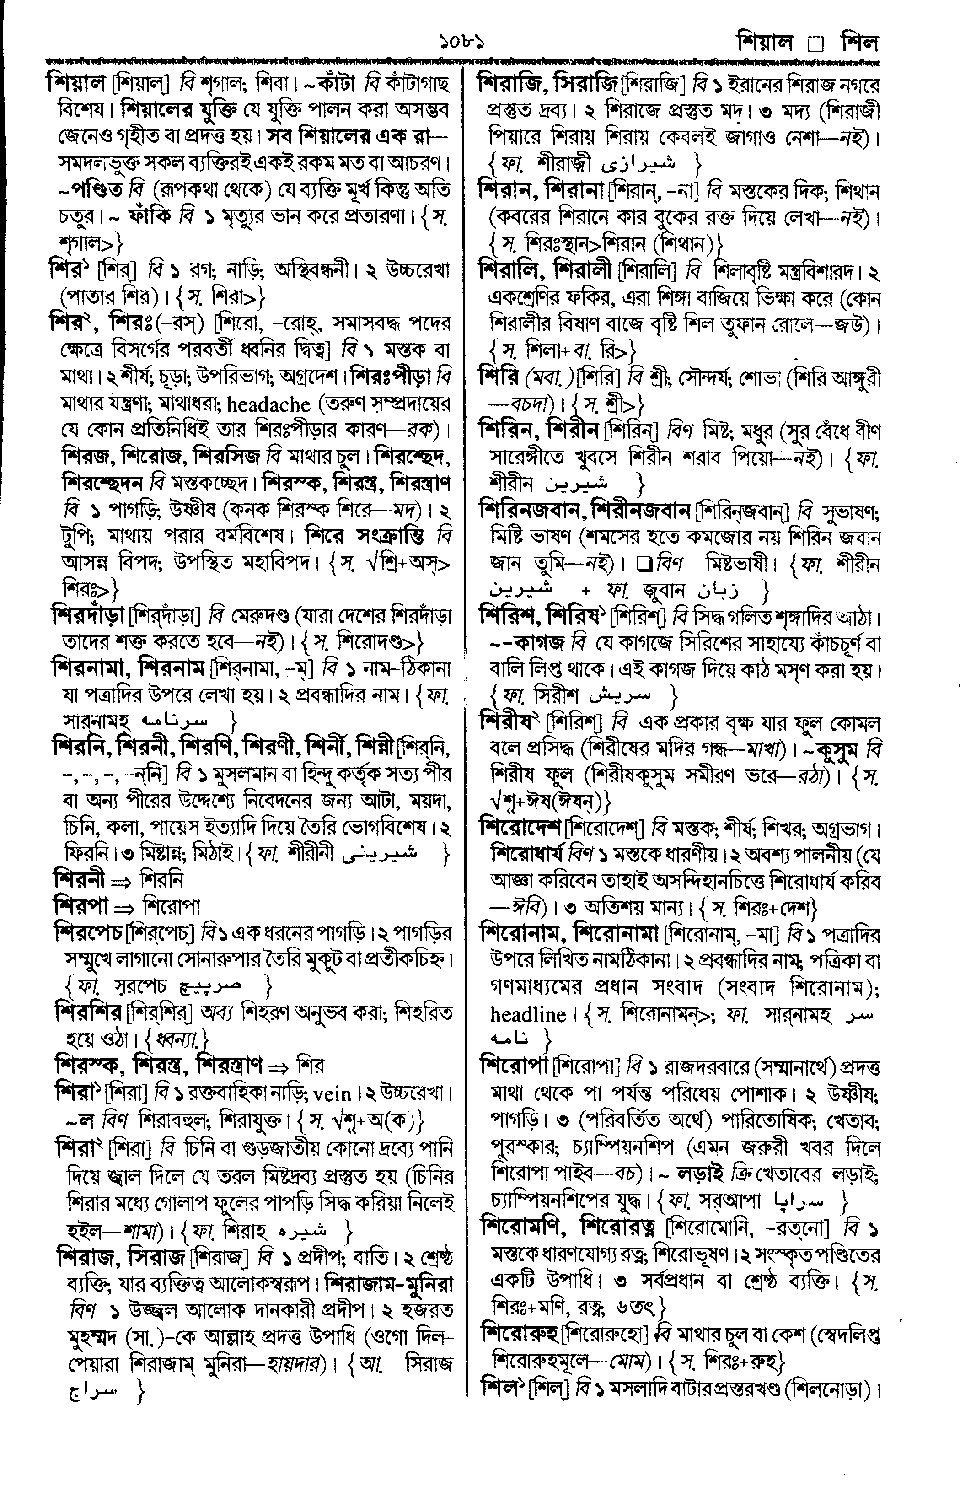 ১০৮১
শিয়াল □ শিল
শিয়াল [শিয়াল্] বি শৃগাল; শিবা। ~কাঁটা বি কাঁটাগাছ
বিশেষ। শিয়ালের যুক্তি যে যুক্তি পালন করা অসম্ভব
জেনেও গৃহীত বা প্রদত্ত হয়। সব শিয়ালের এক রা—
সমদলভুক্ত সকল ব্যক্তিরই একই রকম মত বা আচরণ।
~পণ্ডিত বি (রূপকথা থেকে) যে ব্যক্তি মূর্খ কিন্তু অতি
চতুর। ~ ফাঁকি বি ১ মৃত্যুর ভান করে প্রতারণা। {স.
শৃগাল>}
শির১ [শির্] বি ১ রগ; নাড়ি; অস্থিবন্ধনী। ২ উচ্চরেখা
(পাতার শির)। {স. শিরা>}
শির২, শিরঃ(-রস্) [শিরো, -রোহ্, সমাসবদ্ধ পদের
ক্ষেত্রে বিসর্গের পরবর্তী ধ্বনির দ্বিত্ব] বি ১ মস্তক বা
মাথা। ২ শীর্ষ; চূড়া; উপরিভাগ; অগ্রদেশ। শিরঃপীড়া বি
মাথার যন্ত্রণা; মাথাধরা; headache (তরুণ সম্প্রদায়ের
যে কোন প্রতিনিধিই তার শিরঃপীড়ার কারণ—রক)।
শিরজ, শিরোজ, শিরসিজ বি মাথার চুল। শিরশ্ছেদ,
শিরশ্ছেদন বি মস্তকচ্ছেদ। শিরস্ক, শিরস্ত্র, শিরস্ত্রাণ
বি ১ পাগড়ি; উষ্ণীষ (কনক শিরস্ক শিরে—মদ)। ২
টুপি; মাথায় পরার বর্মবিশেষ। শিরে সংক্রান্তি বি
আসন্ন বিপদ; উপস্থিত মহাবিপদ। {স. √শ্রি+অস্>
শিরঃ>}
শিরদাঁড়া [শির্‌দাঁড়া] বি মেরুদণ্ড (যারা দেশের শিরদাঁড়া
তাদের শক্ত করতে হবে—নই)। {স. শিরোদণ্ড>}
শিরনামা, শিরনাম [শির্‌নামা, -ম্] বি ১ নাম-ঠিকানা
যা পত্রাদির উপরে লেখা হয়। ২ প্রবন্ধাদির নাম। {ফা.
সার্‌নামহ্ سرنامه }
শিরনি, শিরনী, শিরণি, শিরণী, শির্নী, শিন্নী [শির্‌নি,
-,-,-, -ন্‌নি] বি ১ মুসলমান বা হিন্দু কর্তৃক সত্য পীর
বা অন্য পীরের উদ্দেশ্যে নিবেদনের জন্য আটা, ময়দা,
চিনি, কলা, পায়েস ইত্যাদি দিয়ে তৈরি ভোগবিশেষ। ২
ফিরনি। ৩ মিষ্টান্ন; মিঠাই। {ফা. শীরীনী شيرينى }
শিরনী ⇒ শিরনি
শিরপা ⇒ শিরোপা
শিরপেচ [শির্‌পেচ্] বি ১ এক ধরনের পাগড়ি। ২ পাগড়ির
সম্মুখে লাগানো সোনারুপার তৈরি মুকুট বা প্রতীকচিহ্ন।
{ফা. সরপেচ سرپيچ }
শিরশির [শির্‌শির্] অব্য শিহরণ অনুভব করা; শিহরিত
হয়ে ওঠা। {ধ্বন্যা.}
শিরস্ক, শিরস্ত্র, শিরস্ত্রাণ ⇒ শির
শিরা১ [শিরা] বি ১ রক্তবাহিকা নাড়ি; vein। ২ উচ্চরেখা।
~ল বিণ শিরাবহুল; শিরাযুক্ত। {স. √শৃ+অ(ক)}
শিরা২ [শিরা] বি চিনি বা গুড়জাতীয় কোনো দ্রব্যে পানি
দিয়ে জ্বাল দিলে যে তরল মিষ্টদ্রব্য প্রস্তুত হয় (চিনির
শিরার মধ্যে গোলাপ ফুলের পাপড়ি সিদ্ধ করিয়া নিলেই
হইল—শামা)। {ফা. শিরাহ شيره }
শিরাজ, সিরাজ [শিরাজ্] বি ১ প্রদীপ; বাতি। ২ শ্রেষ্ঠ
ব্যক্তি; যার ব্যক্তিত্ব আলোকস্বরূপ। শিরাজাম-মুনিরা
বিণ ১ উজ্জ্বল আলোক দানকারী প্রদীপ। ২ হজরত
মুহম্মদ (সা.)-কে আল্লাহ প্রদত্ত উপাধি (ওগো দিল-
পেয়ারা শিরাজাম্ মুনিরা—হায়দার)। {আ. সিরাজ
سراج }
শিরাজি, সিরাজি [শিরাজি] বি ১ ইরানের শিরাজ নগরে
প্রস্তুত দ্রব্য। ২ শিরাজে প্রস্তুত মদ। ৩ মদ্য (শিরাজী
পিয়ারে শিরায় শিরায় কেবলই জাগাও নেশা—নই)।
{ফা. শীরাজ়ী شيرازى }
শিরান, শিরানা [শিরান্, -না] বি মস্তকের দিক; শিথান
(কবরের শিরানে কার বুকের রক্ত দিয়ে লেখা—নই)।
{স. শিরঃস্থান>শিরান (শিথান)}
শিরালি, শিরালী [শিরালি] বি শিলাবৃষ্টি মন্ত্রবিশারদ। ২
একশ্রেণির ফকির, এরা শিঙ্গা বাজিয়ে ভিক্ষা করে (কোন
শিরালীর বিষাণ বাজে বৃষ্টি শিল তুফান রোলে—জউ)।
{স. শিলা+বা. রি>}
শিরি (মবা.) [শিরি] বি শ্রী; সৌন্দর্য; শোভা (শিরি আঙ্গুরী
—বচদা)। {স. শ্রী>}
শিরিন, শিরীন [শিরিন্] বিণ মিষ্ট; মধুর (সুর বেঁধে বীণ
সারেঙ্গীতে খুবসে শিরীন শরাব পিয়ো—নই)। {ফা.
শীরীন شيرين }
শিরিনজবান, শিরীনজবান [শিরিন্‌জবান্] বি সুভাষণ;
মিষ্টি ভাষণ (শমসের হতে কমজোর নয় শিরিন জবান
জান তুমি—নই)। ❑বিণ মিষ্টভাষী। {ফা. শীরীন
شيرين + ফা. জ়ুবান زبان }
শিরিশ, শিরিষ১ [শিরিশ্] বি সিদ্ধ গলিত শৃঙ্গাদির আঠা।
~-কাগজ বি যে কাগজে সিরিশের সাহায্যে কাঁচচূর্ণ বা
বালি লিপ্ত থাকে। এই কাগজ দিয়ে কাঠ মসৃণ করা হয়।
{ফা. সিরীশ سريش }
শিরীষ২ [শিরিশ্] বি এক প্রকার বৃক্ষ যার ফুল কোমল
বলে প্রসিদ্ধ (শিরীষের মদির গন্ধ—মাখা)। ~কুসুম বি
শিরীষ ফুল (শিরীষকুসুম সমীরণ ভরে—রঠা)। {স.
√শৃ+ঈষ(ঈষন্)}
শিরোদেশ [শিরোদেশ্] বি মস্তক; শীর্ষ; শিখর; অগ্রভাগ।
শিরোধার্য বিণ ১ মস্তকে ধারণীয়। ২ অবশ্য পালনীয় (যে
আজ্ঞা করিবেন তাহাই অসন্দিহানচিত্তে শিরোধার্য করিব
—ঈবি)। ৩ অতিশয় মান্য। {স. শিরঃ+দেশ}
শিরোনাম, শিরোনামা [শিরোনাম্, -মা] বি ১ পত্রাদির
উপরে লিখিত নামঠিকানা। ২ প্রবন্ধাদির নাম; পত্রিকা বা
গণমাধ্যমের প্রধান সংবাদ (সংবাদ শিরোনাম);
headline। {স. শিরোনামন্>; ফা. সার্‌নামহ سر
نامه }
শিরোপা [শিরোপা] বি ১ রাজদরবারে (সম্মানার্থে) প্রদত্ত
মাথা থেকে পা পর্যন্ত পরিধেয় পোশাক। ২ উষ্ণীষ;
পাগড়ি। ৩ (পরিবর্তিত অর্থে) পারিতোষিক; খেতাব;
পুরস্কার; চ্যাম্পিয়নশিপ (এমন জরুরী খবর দিলে
শিরোপা পাইব—বচ)। ~ লড়াই ক্রি খেতাবের লড়াই;
চ্যাম্পিয়নশিপের যুদ্ধ। {ফা. সর্‌আপা سراپا }
শিরোমণি, শিরোরত্ন [শিরোমোনি, -রত্‌নো] বি ১
মস্তকে ধারণযোগ্য রত্ন; শিরোভূষণ। ২ সংস্কৃত পণ্ডিতের
একটি উপাধি। ৩ সর্বপ্রধান বা শ্রেষ্ঠ ব্যক্তি। {স.
শিরঃ+মণি, রত্ন, ৬তৎ}
শিরোরুহ [শিরোরুহো] বি মাথার চুল বা কেশ (স্বেদলিপ্ত
শিরোরুহমূলে—মোম)। {স. শিরঃ+রুহ}
শিল১ [শিল্] বি ১ মসলাদি বাটার প্রস্তরখণ্ড (শিলনোড়া)।